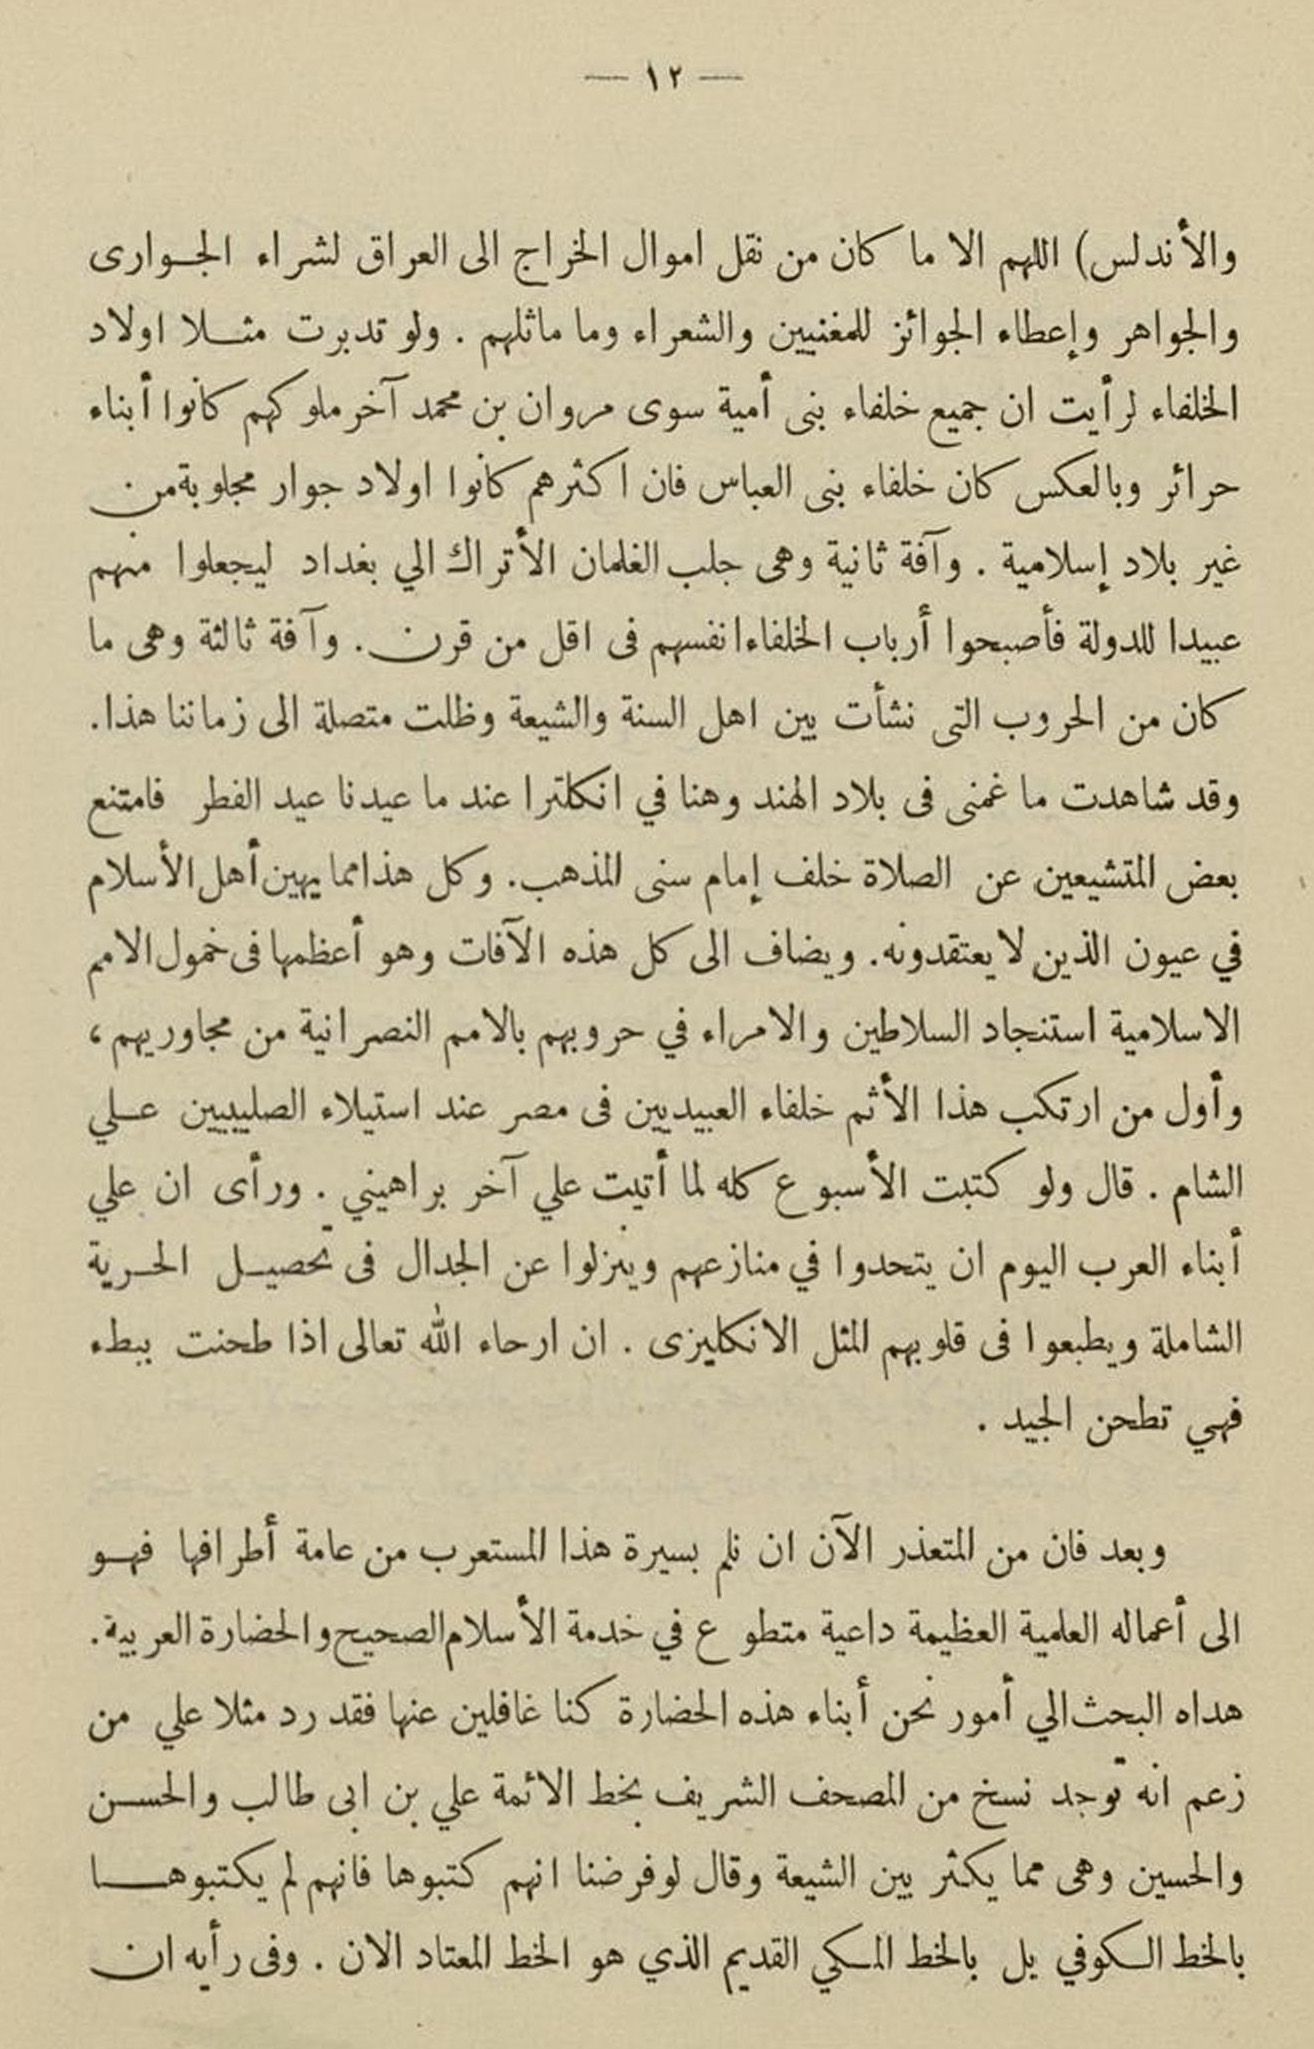 — ١٢ —
والأندلس) اللهم الا ما كان من نقل اموال الخراج الى العراق لشراء الجـوارى
والجواهر وإعطاء الجوائز للمغنيين والشعراء وما ماثلهم . ولو تدبرت مثـلا اولاد
الخلفاء لرأيت ان جميع خلفاء بنى أمية سوى مروان بن محمد آخر ملوكهم كانوا أبناء
حرائر وبالعكس كان خلفاء بنى العباس فان اكثرهم كانوا اولاد جوار مجلوبة من
غير بلاد إسلامية . وآفة ثانية وهى جلب الغلمان الأتراك الي بغداد ليجعلوا منهم
عبيدا للدولة فأصبحوا أرباب الخلفاء انفسهم فى اقل من قرن . وآفة ثالثة وهى ما
كان من الحروب التى نشأت بين اهل السنة والشيعة وظلت متصلة الى زماننا هذا.
وقد شاهدت ما غمنى فى بلاد الهند وهنا في انكلترا عند ما عيدنا عيد الفطر فامتنع
بعض المتشيعين عن الصلاة خلف إمام سنى المذهب. وكل هذا مما يهين أهل الأسلام
في عيون الذين لا يعتقدونه. ويضاف الى كل هذه الآفات وهو أعظمها فى خمول الامم
الاسلامية استنجاد السلاطين والامراء في حروبهم بالامم النصرانية من مجاوريهم ،
وأول من ارتكب هذا الأثم خلفاء العبيديين فى مصر عند استيلاء الصليبيين عـلي
الشام . قال ولو كتبت الأسبوع كله لما أتيت علي آخر براهيني . ورأى ان علي
أبناء العرب اليوم ان يتحدوا في منازعهم وينزلوا عن الجدال فى تحصيـل الحـرية
الشاملة ويطبعوا فى قلوبهم المثل الانكليزى . ان ارحاء الله تعالى اذا طحنت ببطء
فهي تطحن الجيد .
وبعد فان من المتعذر الآن ان نلم بسيرة هذا المستعرب من عامة أطرافها فهـو
الى أعماله العلمية العظيمة داعية متطوع في خدمة الأسلام الصحيح والحضارة العربية.
هداه البحث الي أمور نحن أبناء هذه الحضارة كنا غافلين عنها فقد رد مثلا علي من
زعم انه توجد نسخ من المصحف الشريف بخط الائمة علي بن ابى طالب والحسـن
والحسين وهى مما يكثر بين الشيعة وقال لو فرضنا انهم كتبوها فانهم لم يكتبوهـا
بالخط الـكوفي بل بالخط المـكي القديم الذي هو الخط المعتاد الان . وفى رأيه ان